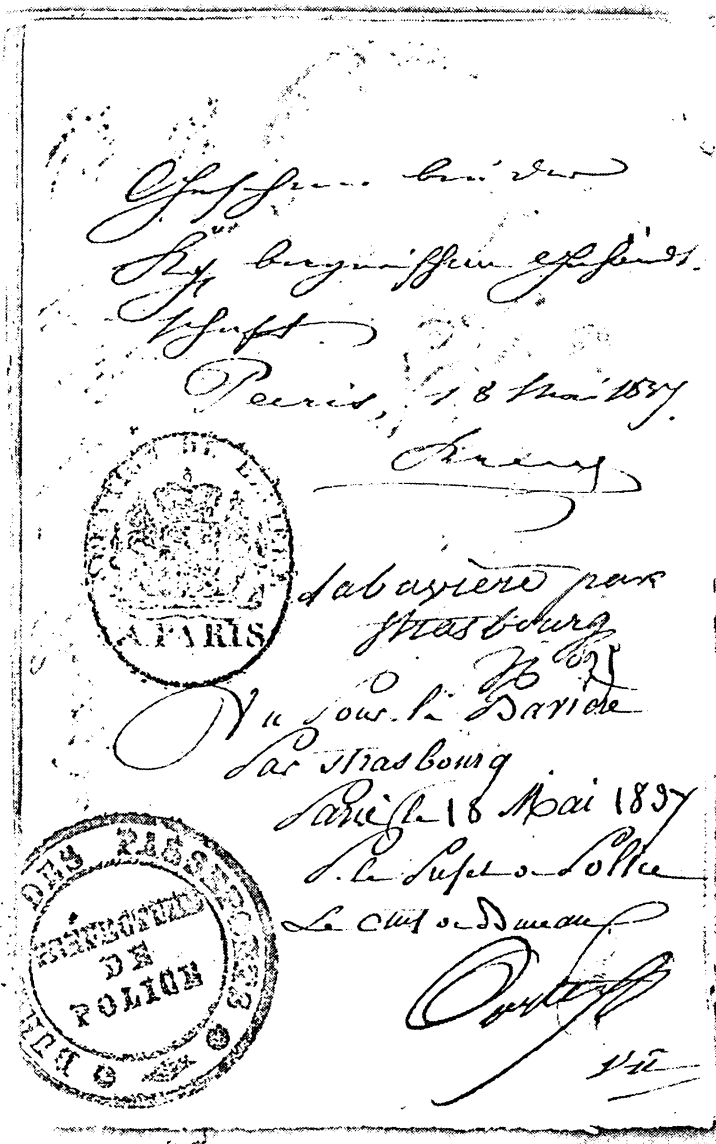 Gesehen bei der
Kgl bayerischen Gesandt-
schaft.
Paris, 18 Mai 1837.
DE
A PARIS
la bavière par
Strasbourg
Vu pour la Bavière
Par Strasbourg
Paris le 18 Mai 1837
P. le Prefet de Police
Le chef de Bureau
BUREAU DES PASSEPORTS
PREFECTURE
DE
POLICE